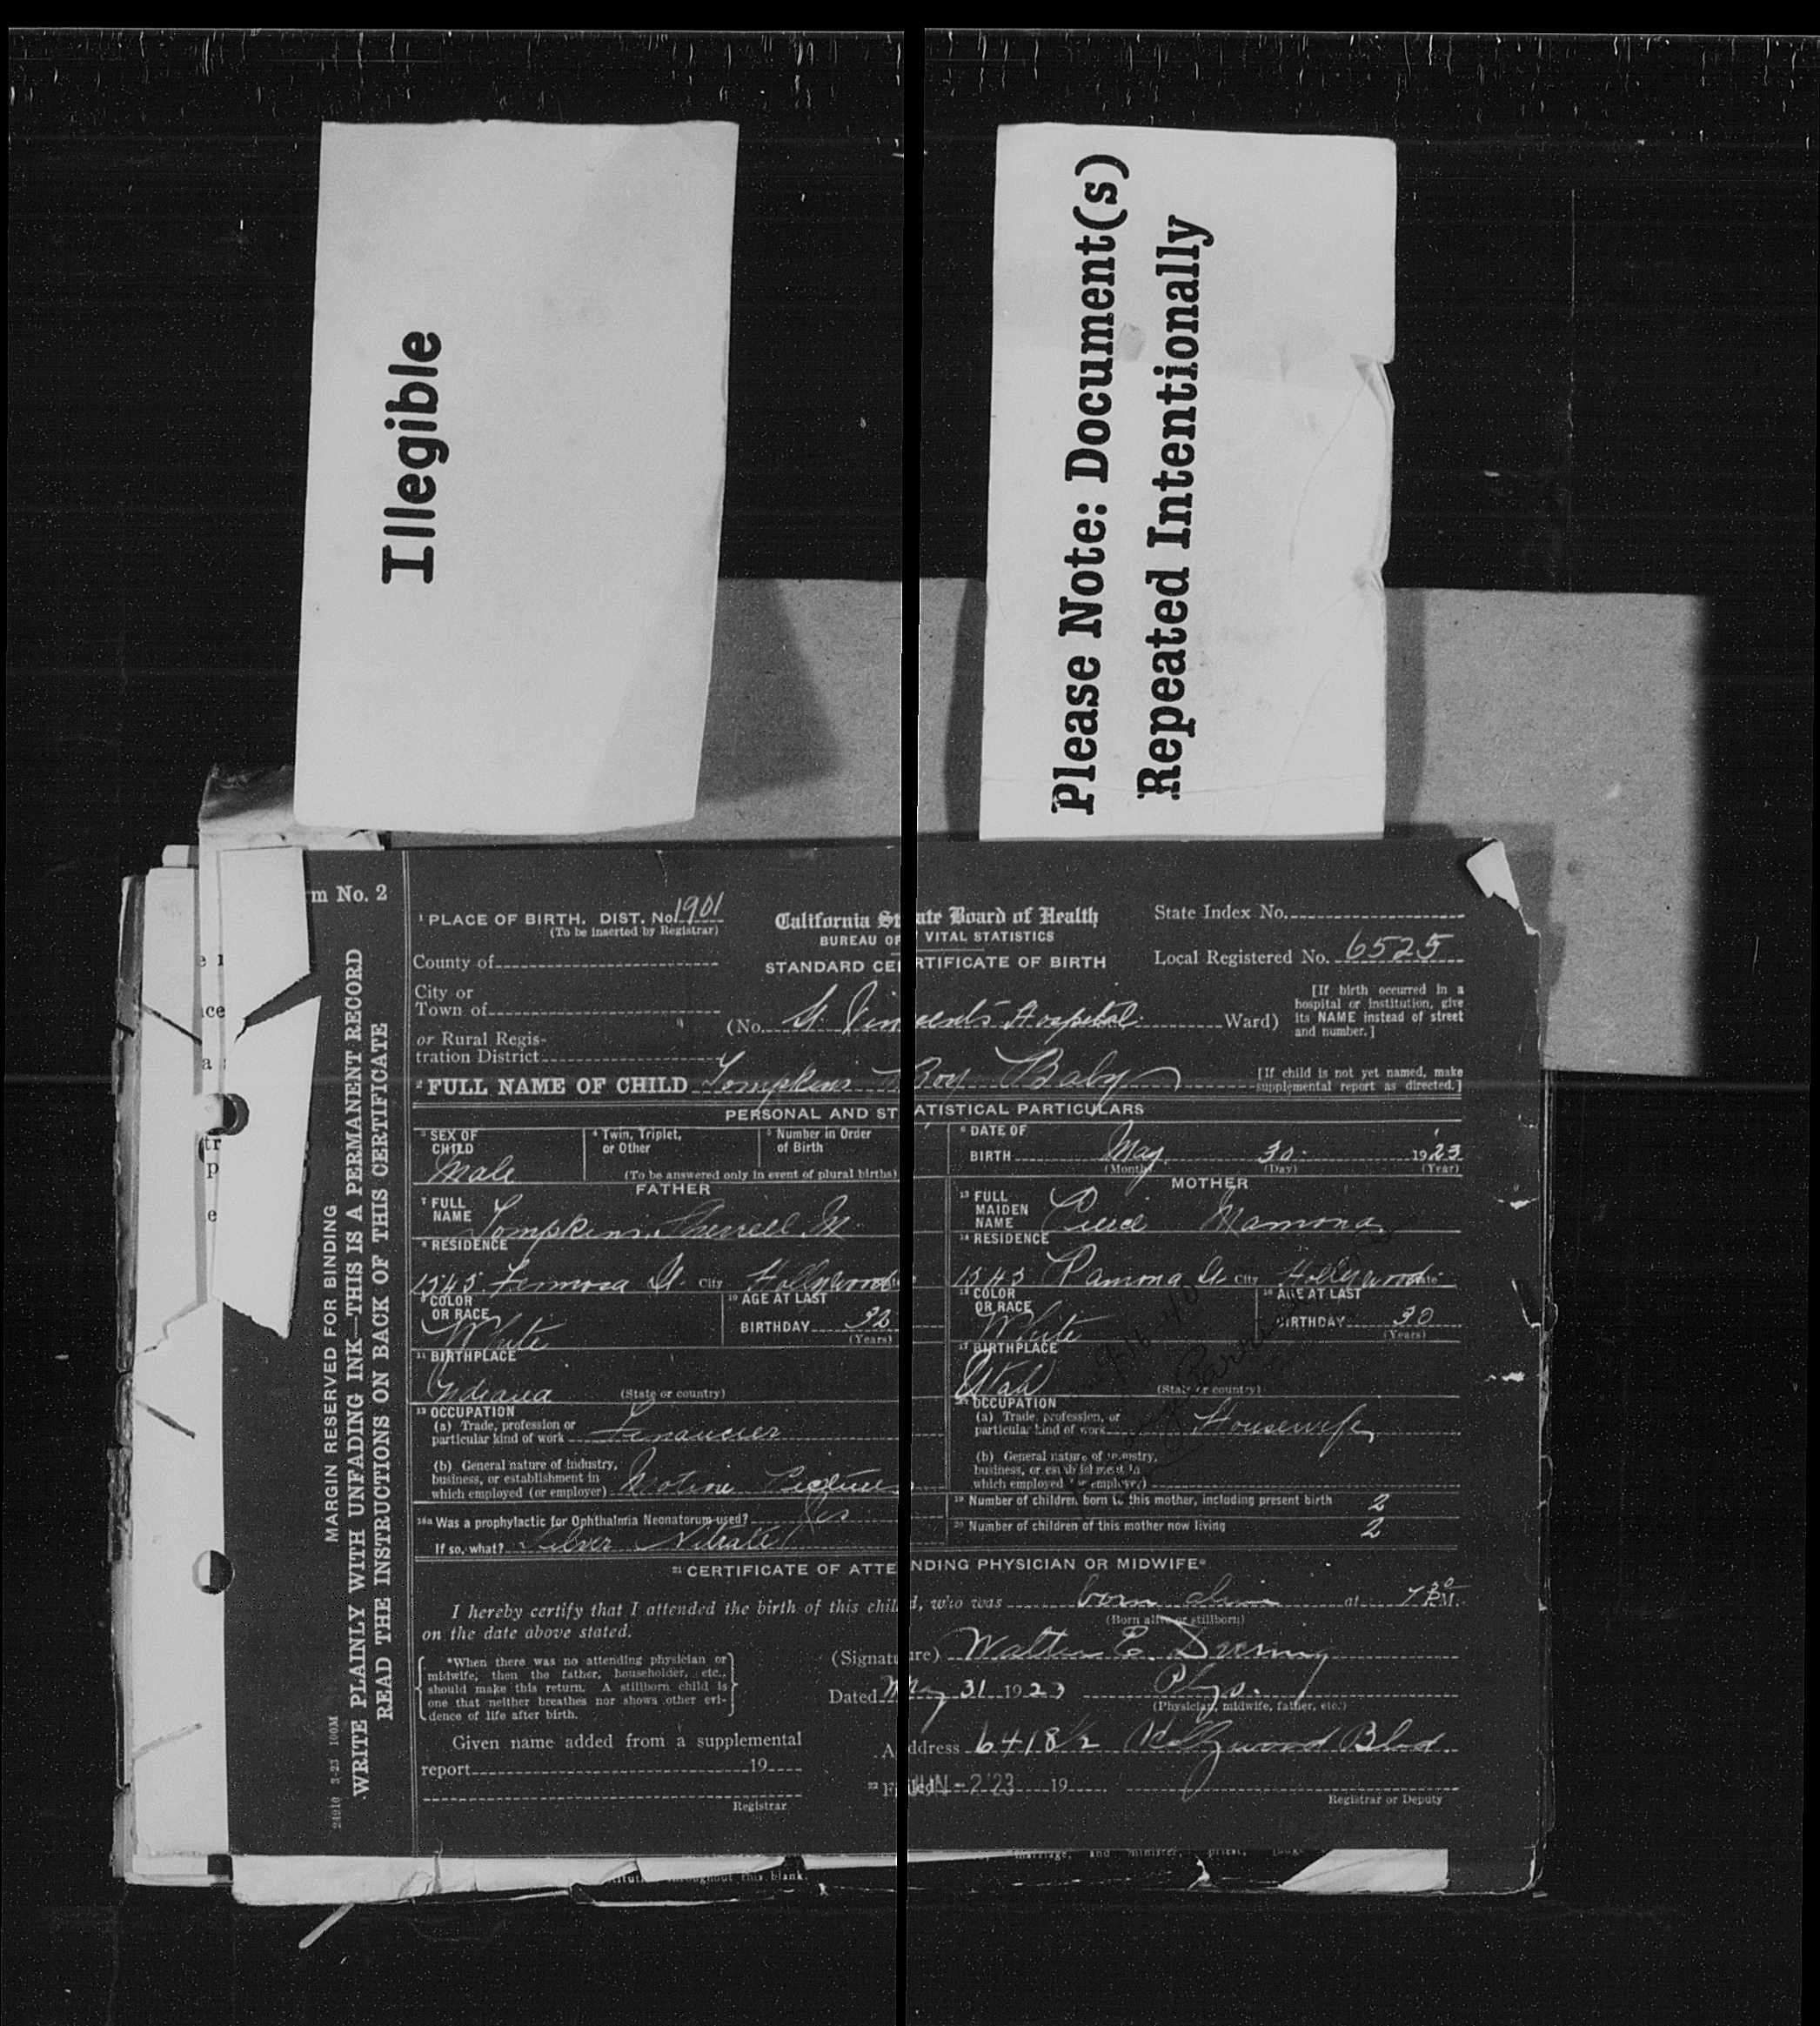 Illegible
Please Note: Document(s)
Repeated Intentionally
m No. 2
MARGIN RESERVED FOR BINDING
WRITE PLAINLY WITH UNFADING INK—THIS IS A PERMANENT RECORD
READ THE INSTRUCTIONS ON BACK OF THIS CERTIFICATE
24910 3-23 100M
1 PLACE OF BIRTH. DIST. No. 1901
(To be inserted by Registrar)
County of
City or
Town of
or Rural Regis-
tration District
California State Board of Health
BUREAU OF VITAL STATISTICS
STANDARD CERTIFICATE OF BIRTH
State Index No.
Local Registered No. 6525
(No. St. Vincent's Hospital Ward)
[If birth occurred in a
hospital or institution, give
its NAME instead of street
and number.]
2 FULL NAME OF CHILD Tompkins Boy Baby
[If child is not yet named, make
supplemental report as directed.]
PERSONAL AND STATISTICAL PARTICULARS
3 SEX OF
CHILD
Male
4 Twin, Triplet,
or Other
5 Number in Order
of Birth
(To be answered only in event of plural births)
6 DATE OF
BIRTH May 30 1923
(Month) (Day) (Year)
FATHER
7 FULL
NAME Tompkins, Sherrell M
8 RESIDENCE
1545 Formosa St. City Hollywood
9 COLOR
OR RACE
White
10 AGE AT LAST
BIRTHDAY 32
(Years)
11 BIRTHPLACE
Indiana (State or country)
12 OCCUPATION
(a) Trade, profession or
particular kind of work Financier
(b) General nature of industry,
business, or establishment in
which employed (or employer) Motion Pictures
MOTHER
13 FULL
MAIDEN
NAME Ramona
14 RESIDENCE
1545 Ramona St. City Hollywood
15 COLOR
OR RACE
White
16 AGE AT LAST
BIRTHDAY 30
(Years)
17 BIRTHPLACE
Utah (State or country)
OCCUPATION
(a) Trade, profession, or
particular kind of work Housewife
(b) General nature of industry,
business, or establishment in
which employed (or employer)
18a Was a prophylactic for Ophthalmia Neonatorum used? Yes
If so, what? Silver Nitrate
19 Number of children born to this mother, including present birth 2
20 Number of children of this mother now living 2
21 CERTIFICATE OF ATTENDING PHYSICIAN OR MIDWIFE*
I hereby certify that I attended the birth of this child, who was born alive at 7 30 P.M.
(Born alive or stillborn)
on the date above stated.
*When there was no attending physician or
midwife, then the father, householder, etc.,
should make this return. A stillborn child is
one that neither breathes nor shows other evi-
dence of life after birth.
(Signature) Walter E. Deering
Dated May 31 1923 Phys.
(Physician, midwife, father, etc.)
Given name added from a supplemental
report 19
Registrar
Address 6418 1/2 Hollywood Blvd
22 Filed JUN - 2 '23 19
Registrar or Deputy
throughout this blank.
marriage, and minister, priest,